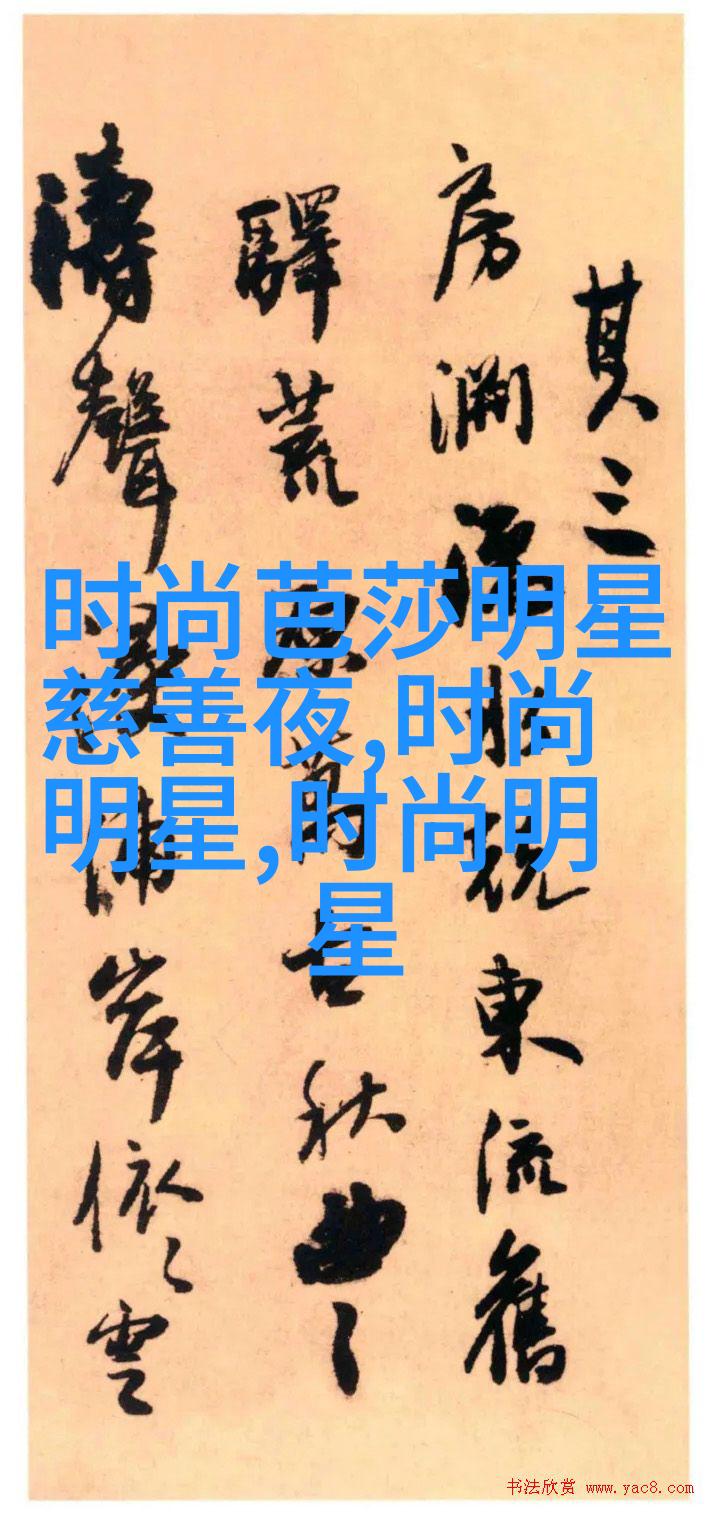 其三
房 東流舊
驛荒 萬古秋曲々
濤聲 岸依々雲
时尚芭莎明星
慈善夜,时尚
明星,时尚明
星
书法欣赏 www.yac8.com